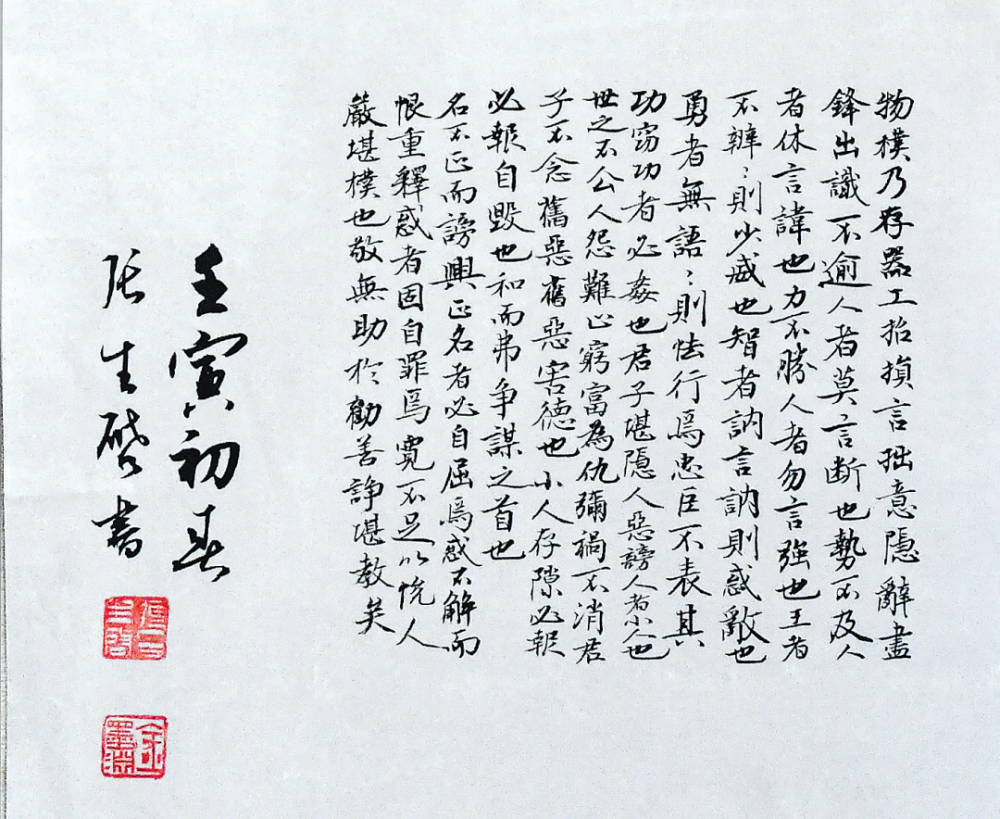 物樸乃存器工招損言拙意隱辭盡
鋒出識不逾人者莫言断也勢不及人
者休言諱也力不勝人者勿言強也王者
不辯〻則少威也智者訥言訥則惑敵也
勇者無語〻則怯行焉忠臣不表其
功竊功者必姦也君子堪隱人惡謗人者小人也
世之不公人怨難止窮富為仇彌禍不消君
子不念舊惡舊惡害德也小人存隙必報
必報自毀也和而弗争謀之首也
名不正而謗興正名者必自屈焉惑不解而
恨重釋惑者固自罪焉寬不足以悅人
嚴堪樸也敬無助於勸善諍堪教矣
壬寅初春
張生啓書